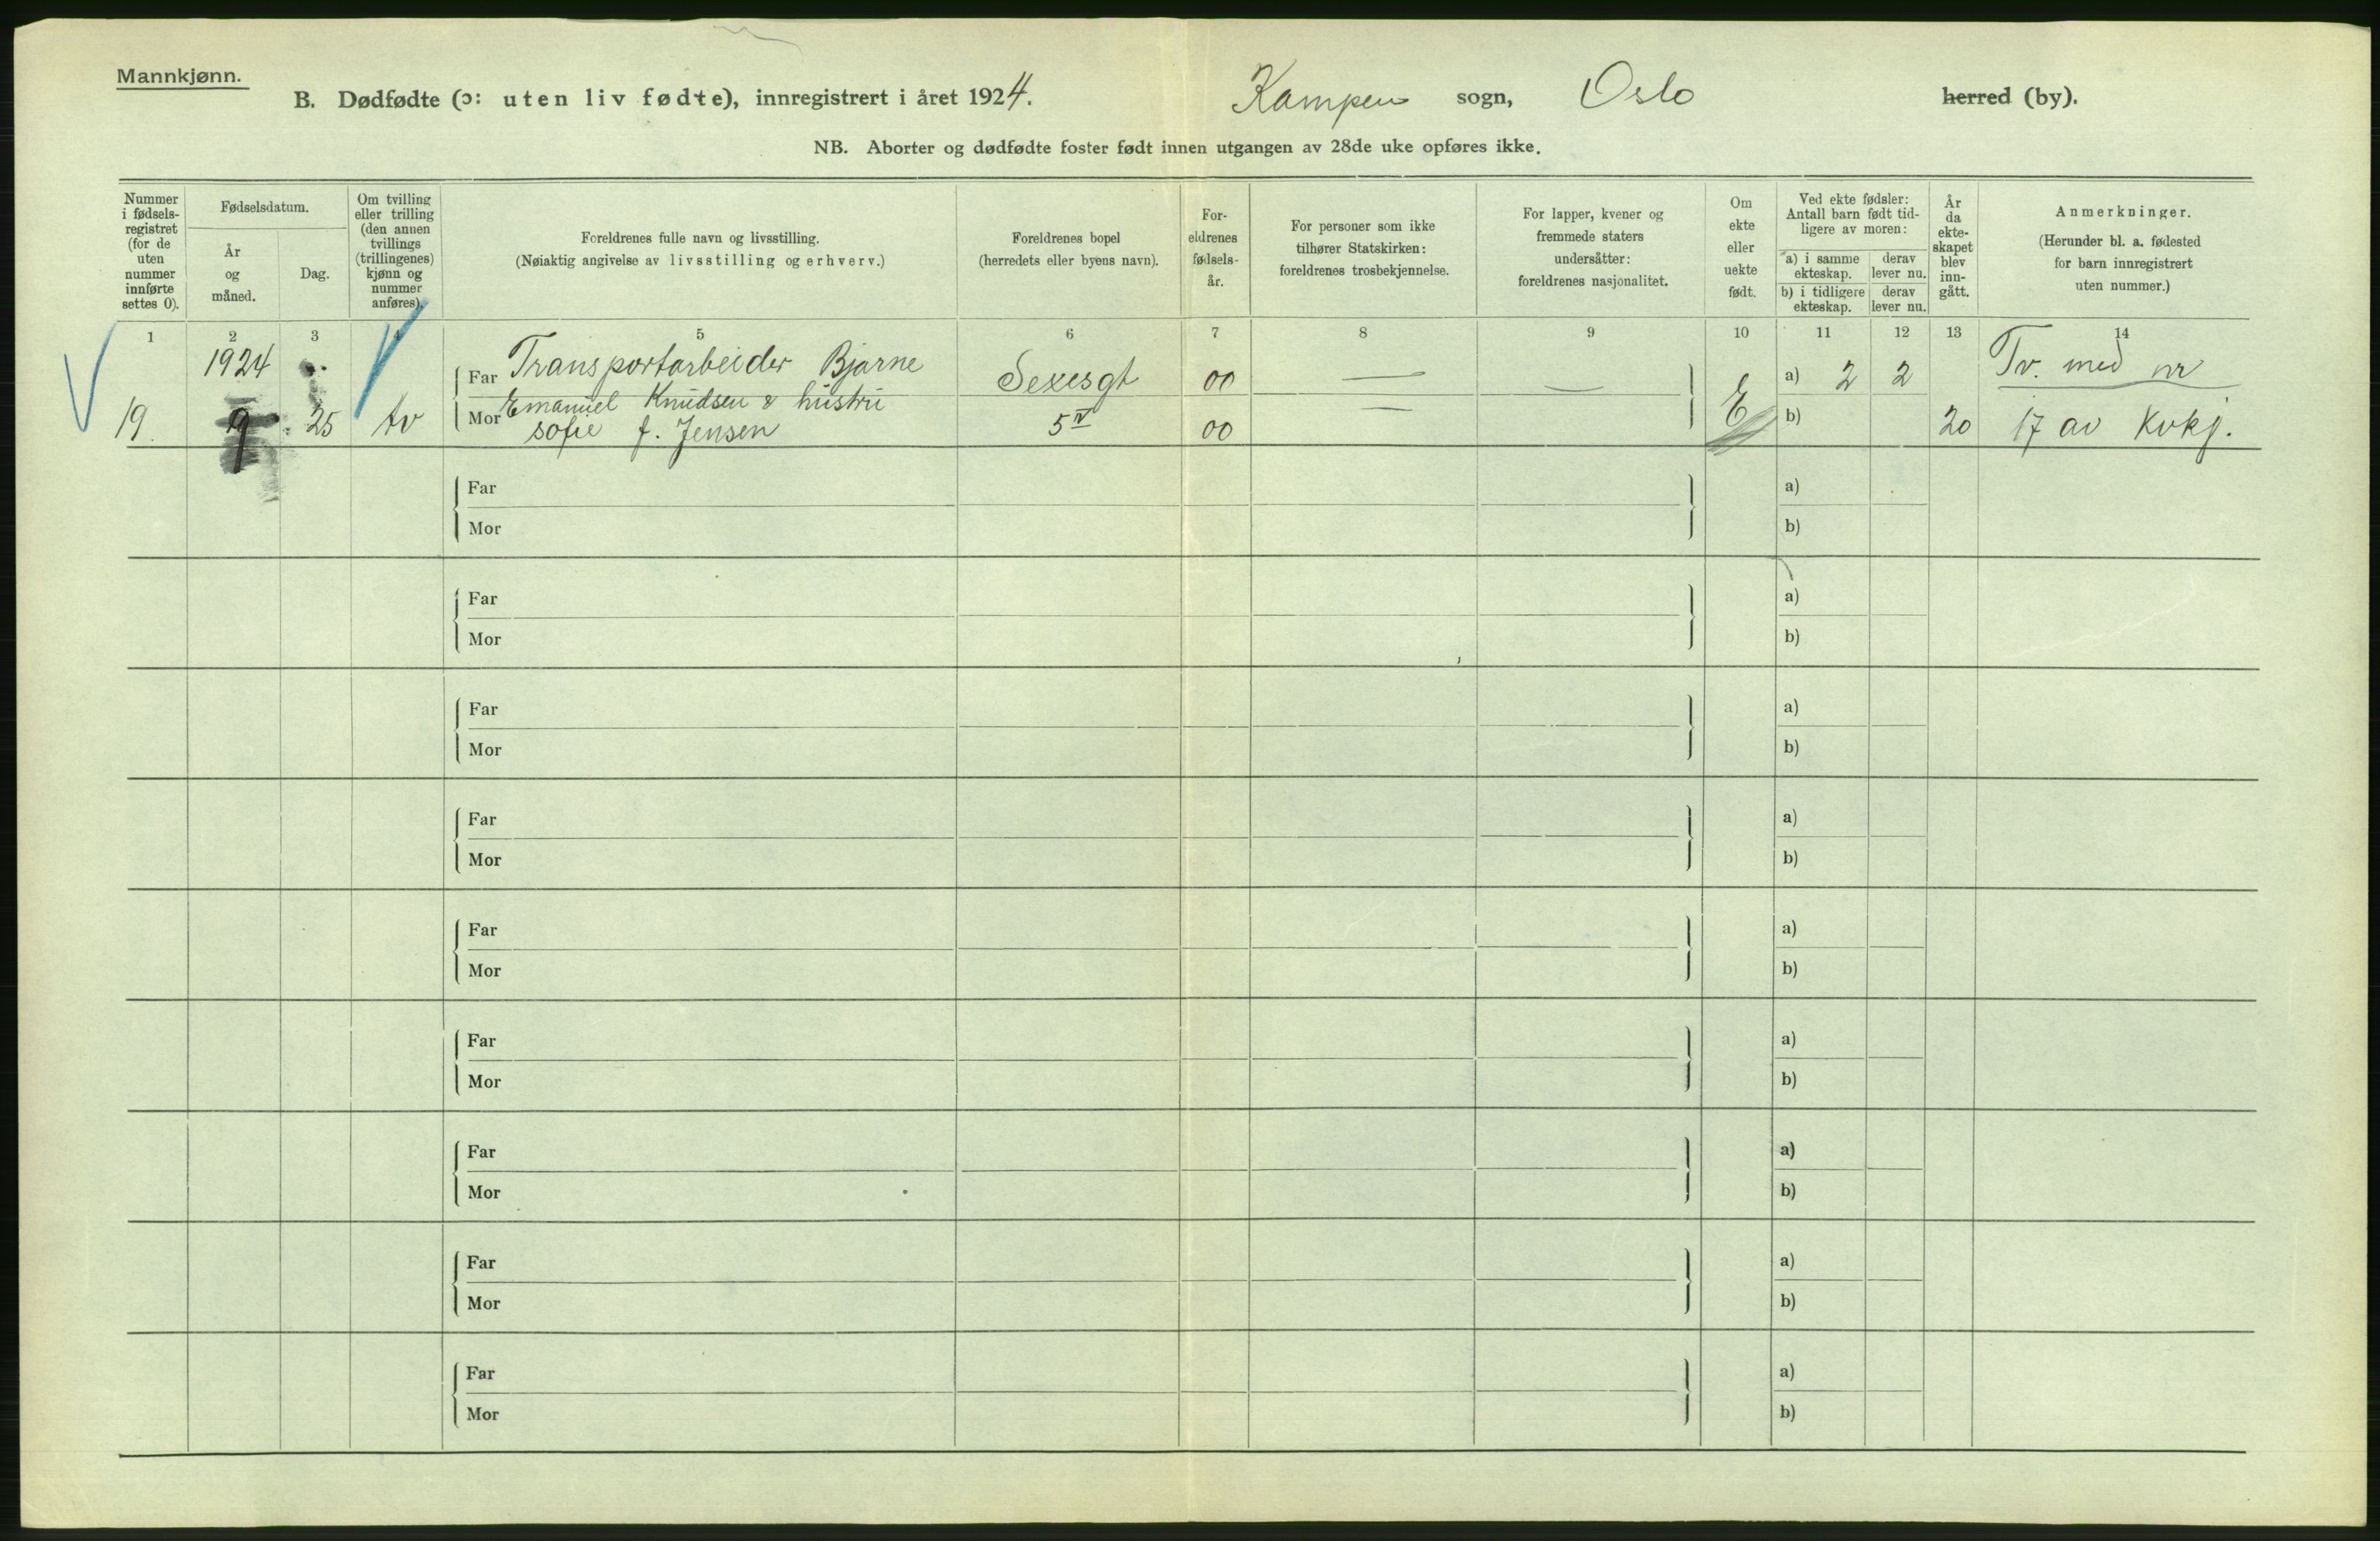 Mannkjønn.
B. Dødfødte (ɔ: uten liv fødte), innregistrert i året 1924. Kampen sogn, Oslo herred (by).
NB. Aborter og dødfødte foster født innen utgangen av 28de uke opføres ikke.
Nummer i fødsels-registret (for de uten nummer innførte settes 0).
Fødselsdatum.
År og måned.
Dag.
Om tvilling eller trilling (den annen tvillings (trillingenes) kjønn og nummer anføres).
Foreldrenes fulle navn og livsstilling.
(Nøiaktig angivelse av livsstilling og erhverv.)
Foreldrenes bopel
(herredets eller byens navn).
For-eldrenes fødsels-år.
For personer som ikke tilhører Statskirken: foreldrenes trosbekjennelse.
For lapper, kvener og fremmede staters undersåtter: foreldrenes nasjonalitet.
Om ekte eller uekte født.
Ved ekte fødsler: Antall barn født tid-ligere av moren:
a) i samme ekteskap. derav lever nu.
b) i tidligere ekteskap. derav lever nu.
År da ekte-skapet blev inn-gått.
Anmerkninger.
(Herunder bl. a. fødested for barn innregistrert uten nummer.)
1 2 3 4 5 6 7 8 9 10 11 12 13 14
1924 Far Transportarbeider Bjarne Sexesgt 00 — — a) 2 2 Tv. med nr
19. 9 25 tv Mor Emanuel Knudsen & hustru — E b) 20 17 av Kvkj.
Sofie f. Jensen 5 IV 00
Far a)
Mor b)
Far a)
Mor b)
Far a)
Mor b)
Far a)
Mor b)
Far a)
Mor b)
Far a)
Mor b)
Far a)
Mor b)
Far a)
Mor b)
Far a)
Mor b)